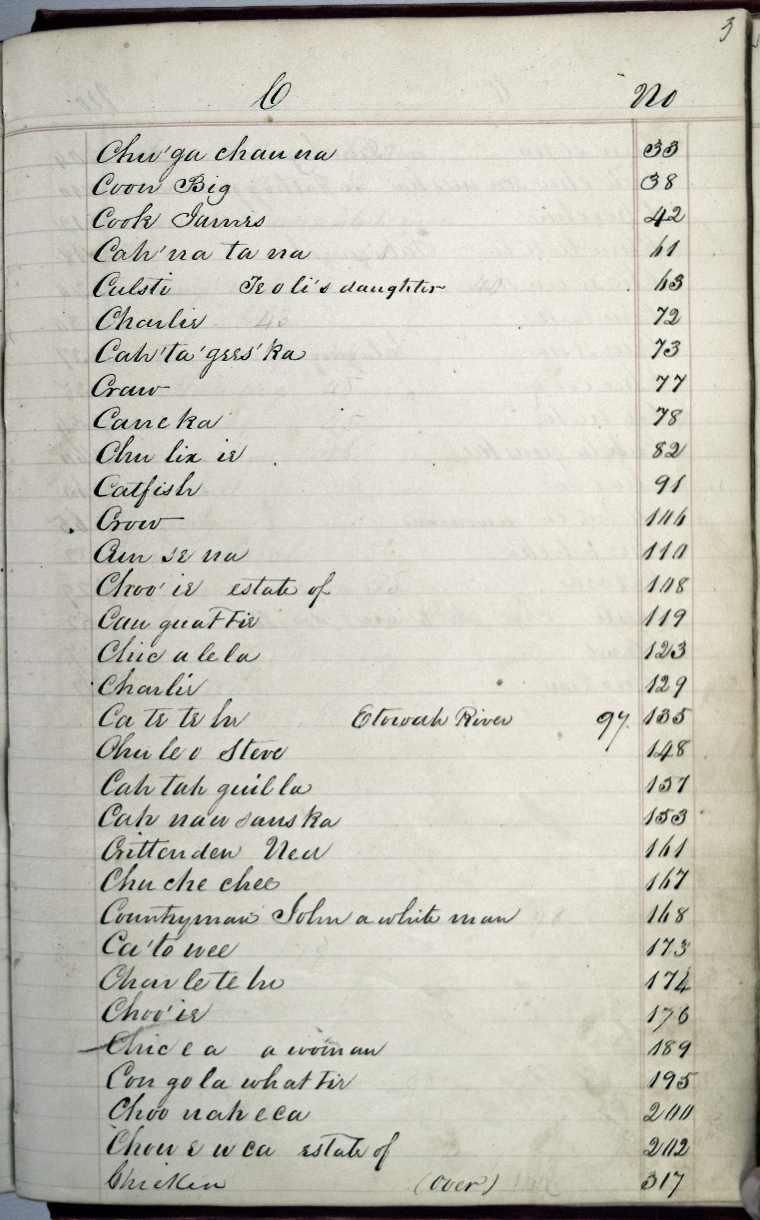 3
C No
Chu'ga chau na 33
Coon Big 38
Cook James 42
Cah'na ta na 61
Culsti Te o li's daughter 63
Charlie 72
Cah'ta'gees'ka 73
Craw 77
Cane ka 78
Chu lix ie 82
Catfish 91
Crow 106
Cun se na 110
Choo'ie estate of 108
Cau quat tie 119
Chic a le la 123
Charlie 129
Ca te te hu Etowah River 97. 135
Chu le o Steve 148
Cah tah quil la 151
Cah nau sans ka 153
Crittenden Ned 161
Chu che chee 167
Countryman John a white man 168
Ca'to wee 173
Char le te hu 174
Choo'ie 176
Chic e a a woman 189
Con go la what tie 195
Choo nah e ca 200
Chou e u ca estate of 202
Chicken (Over) 317